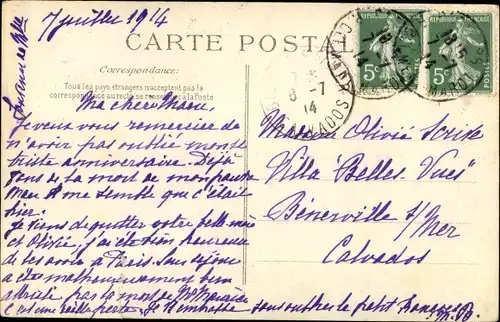 7 juillet 1914
CARTE POSTALE
Correspondance:
Tous les pays étrangers n'acceptent pas la
correspondance au recto se renseigner à la Poste
Ma cher Mau,
Je veux vous remercier de
n'avoir pas oublié mon
triste anniversaire. Déjà
ans de la mort de mon pauvre
Mau il me semble que c'était
hier.
Je viens de quitter votre belle-mère
et Olivié, j'ai été bien heureuse
de les avoir à Paris. Leur séjour
a été malheureusement bien
attristé par la mort de Mr
c'est une belle perte. Je t'embrasse sans oublier le petit
REPUBLIQUE FRANÇAISE
5c
POSTES
REPUBLIQUE FRANÇAISE
5c
POSTES
8 -7
14
CALVADOS
Madame Olivié Scrive
"Villa Belles Vues"
Bénerville s/Mer
Calvados